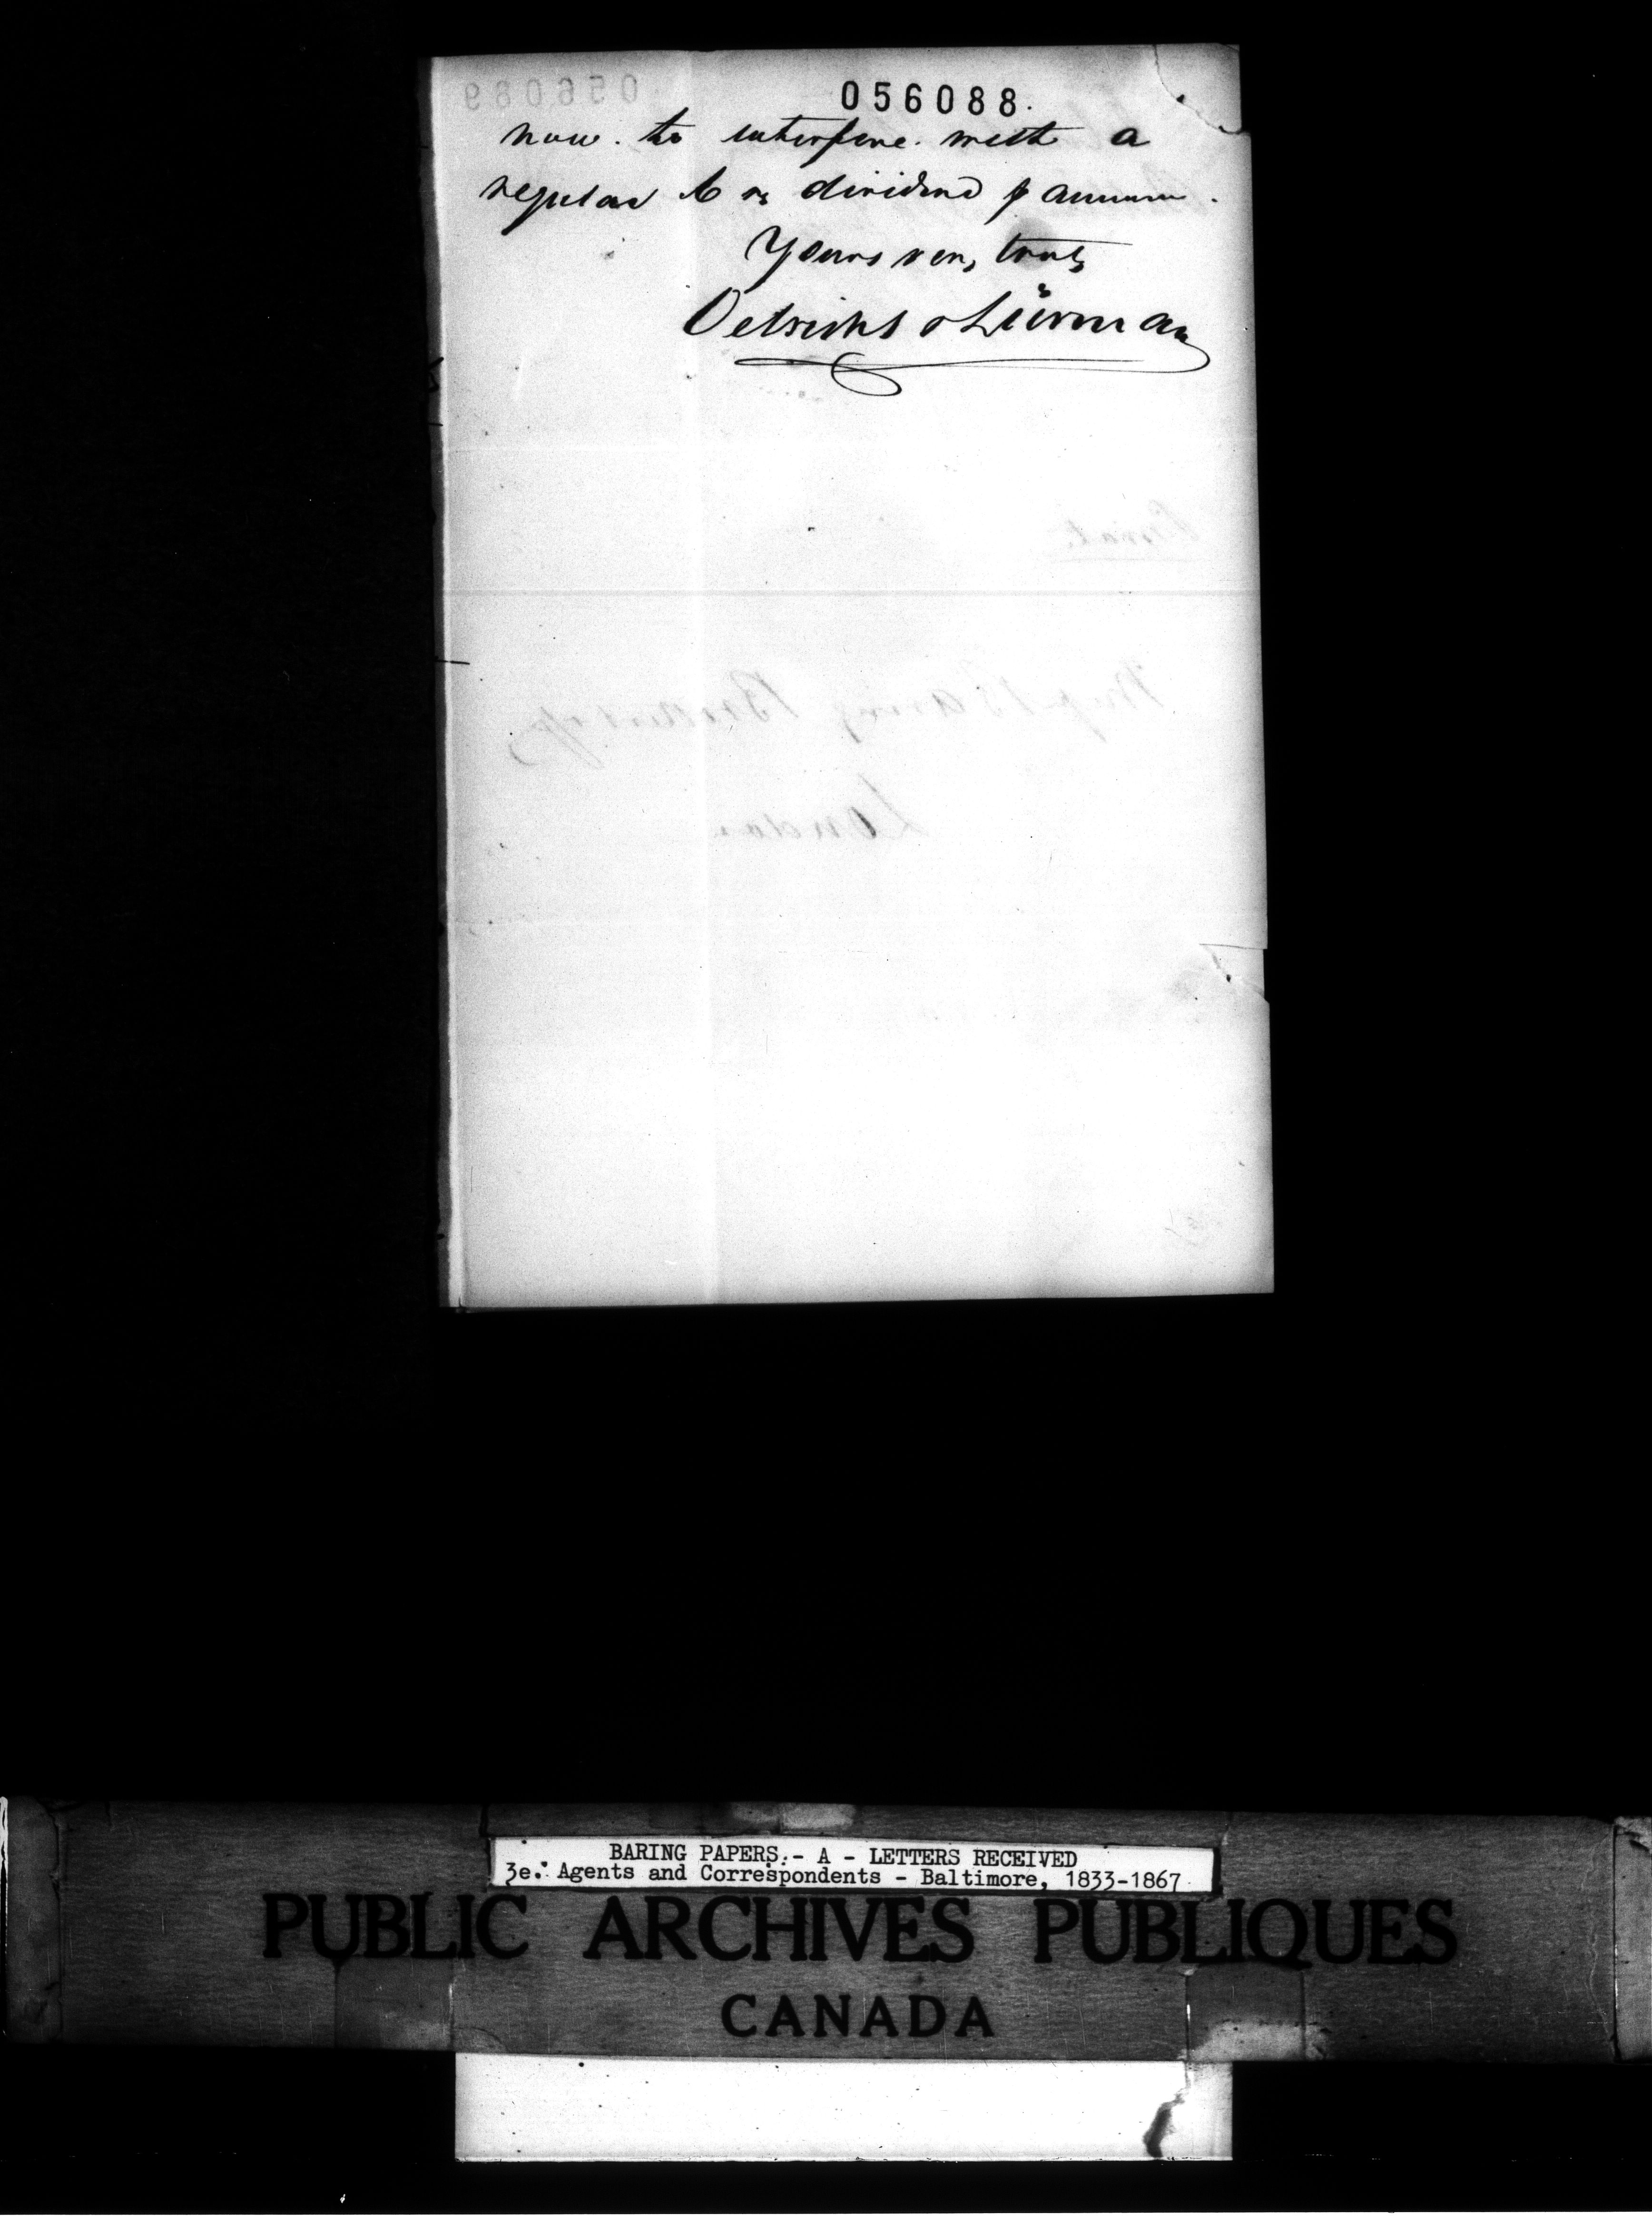 056089
056088.
now. to interfere. with a
regular 6 % dividend p annum.
Yours very truly
Oelrichs & Lürman
Private
Baring Brothers
London
BARING PAPERS.- A - LETTERS RECEIVED
3e. Agents and Correspondents - Baltimore, 1833-1867
PUBLIC ARCHIVES PUBLIQUES
CANADA